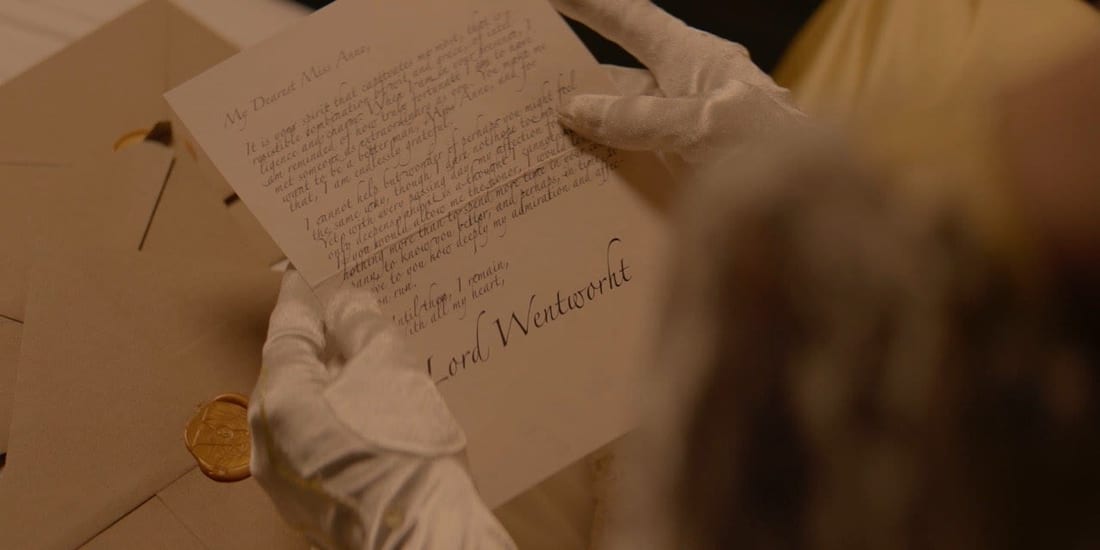 My Dearest Miss Anne,
It is your spirit that captivates me most,
combination of wit and grace,
When I am in your presence, I
am reminded of how truly fortunate I am to have
met someone as extraordinary as you. You make me
want to be a better man, Miss Anne, and for
that, I am endlessly grateful.
I cannot help but wonder if perhaps you might feel
the same way, though I dare not hope to
Yet with every passing day, my affection
only deepens, and it is a thought I cannot
If you would allow me the honor, I would
nothing more than to spend more time in
to know you better, and perhaps, in
to you how deeply my admiration and
run.
Until then, I remain,
with all my heart,
Lord Wentworht